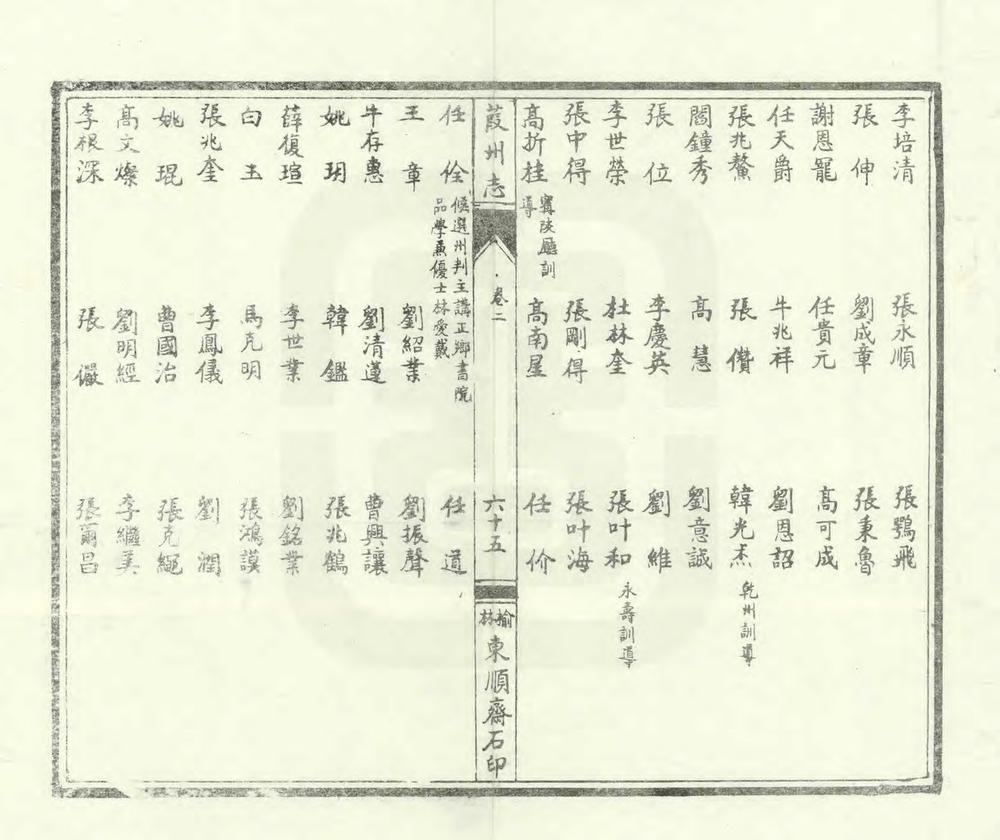 李培清　張永順　張鶚飛
張伸　劉成章　張秉魯
謝恩寵　任貴元　高可成
任天爵　牛兆祥　劉恩詔
張兆鰲　張儹　韓光杰乾州訓導
閻鐘秀　高慧　劉意誠
張位　李慶英　劉維
李世榮　杜林奎　張叶和永壽訓導
張中得　張剛得　張叶海
高折桂寗陝廳訓導　高南星　任价
葭州志　卷二　六十五　榆林東順齋石印
任佺候選州判主講正鄉書院品學兼優士林愛戴　任道
王章　劉紹業　劉振聲
牛存惠　劉清蓮　曹興讓
姚玥　韓鑑　張兆鶴
薛復瑄　李世業　劉銘業
白玉　馬克明　張鴻謨
張兆奎　李鳳儀　劉潤
姚琨　曹國治　張克繩
高文燦　劉明經　李繼美
李根深　張儼　張爾昌